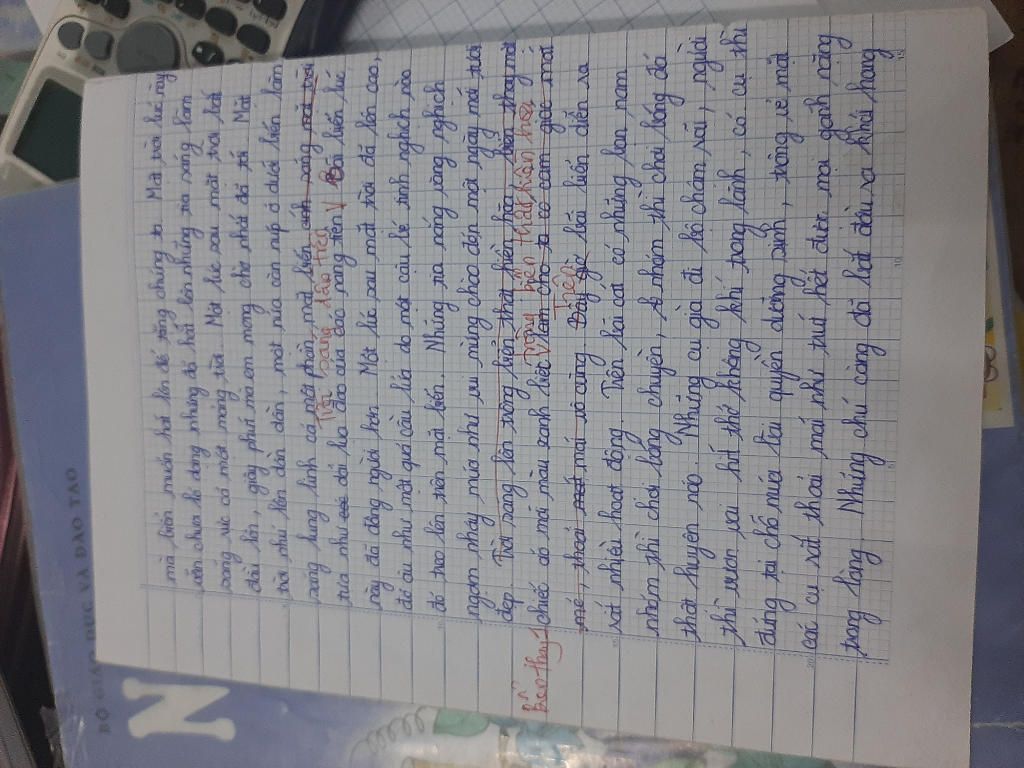 mà biển muốn hát lên để tặng chúng ta. Mặt trời lúc này
vẫn chưa ló dạng nhưng đã hắt lên những tia sáng làm
sáng rực cả một mảng trời. Một lúc sau mặt trời bắt
đầu lên, giây phút mà em mong chờ nhất đã tới. Mặt
trời nhú lên dần dần, một nửa còn núp ở dưới biển làm
sáng lung linh cả một phần mặt biển ánh sáng mặt trời
Tiệt sáng đầu tiên
tựa như dải lụa đào đưa đào sang trên V Bãi biển lúc
này đã đông người hơn. Một lúc sau mặt trời đã lên cao,
đỏ âu như một quả cầu lửa do một cậu bé tinh nghịch nào
đó treo lên trên mặt biển. Những tia nắng vàng nghịch
ngợm nhảy múa như vui mừng chào đón một ngày mới tươi
đẹp. Trời sáng lên trông biển thật hiền hòa, biển thay một
Bển thay
chiếc áo mới màu xanh biếc V làm cho ta có cảm giác mát
Trông biển thật hiền hòa
mẻ thoải mái vô cùng. Bây giờ bãi biển diễn ra
Trên
rất nhiều hoạt động. Trên bãi cát có những lan nam
nhóm thì chơi bóng chuyền, nhóm thì chơi bóng đá
thật huyên náo. Những cụ già đi bộ chậm rãi, người
thì vươn vai hít thở không khí trong lành, có cụ thì
đứng tại chỗ múa bài quyền dưỡng sinh, trông vẻ mặt
các cụ rất thoải mái như trút hết được mọi gánh nặng
trong lòng. Những chú còng đã bắt đầu ra khỏi hang
BỘ GIÁO DỤC VÀ ĐÀO TẠO
N